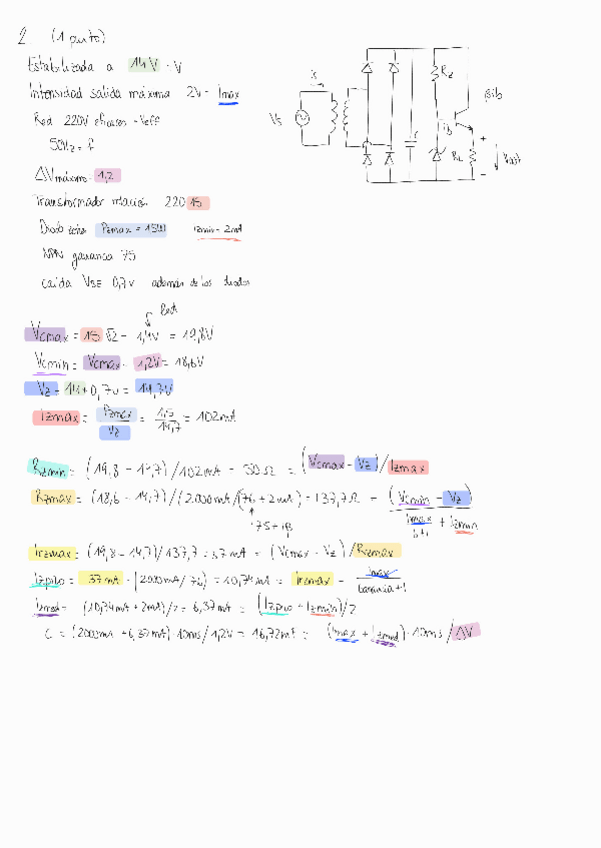 2. (1 punto)
Estabilizada a 14V = V
Intensidad salida máxima 2A = Imax
Red 220V eficaces = Veff
50Hz = f
ΔVmáximo = 1,2
Transformador relación 220 15
Diodo zener Pzmax = 1,5W Izmin = 2mA
NPN ganancia 75
caída VBE 0,7V además de los diodos
Is
Vs
C
Rz
ib
βib
RL
+
Vout
-
Vcmax = 15 √2 - 1,4V = 19,8V
Vcmin = Vcmax - 1,2V = 18,6V
Vz = 14 + 0,7V = 14,7V
Izmax = Pzmax / Vz = 1,5 / 14,7 = 102mA
Rzmin = (19,8 - 14,7) / 102mA = 50Ω = (Vcmax - Vz) / Izmax
Rzmax = (18,6 - 14,7) / (2000mA / (76 + 2mA) = 137,7Ω = (Vcmin - Vz) / Imax + Izmin
Irzmax = (19,8 - 14,7) / 137,7 = 37mA = (Vcmax - Vz) / Rzmax
Izpico = 37mA - (2000mA / 76) = 10,74mA = Irzmax - Imax / Ganancia + 1
Izmed = (10,74mA + 2mA) / 2 = 6,37mA = (Izpico + Izmin) / 2
C = (2000mA + 6,37mA) · 10ms / 1,2V = 16,72mF = (Imax + Izmed) · 10ms / ΔV